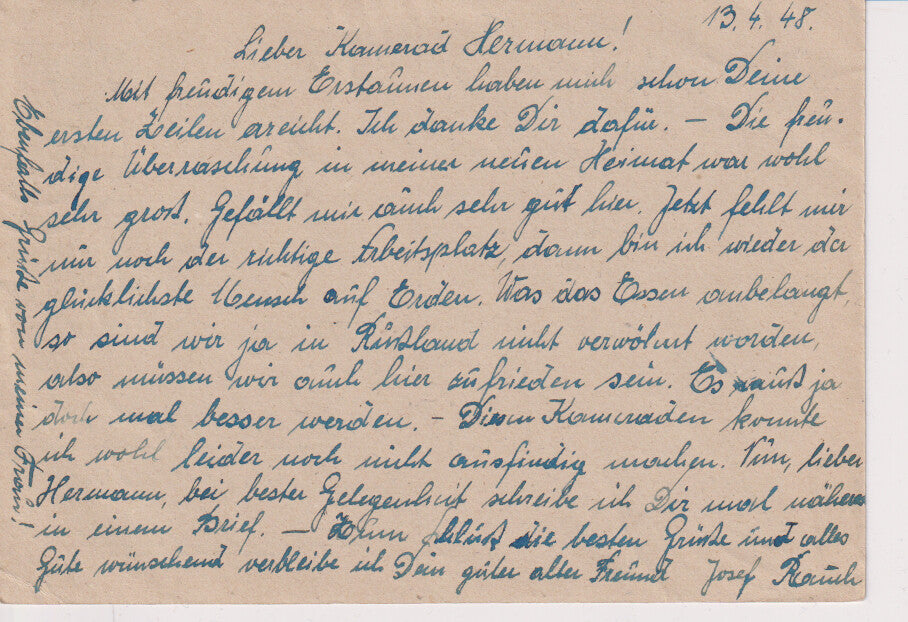 13.4.48.
Lieber Kamerad Hermann!
Mit freudigem Erstaunen haben mich schon Deine
ersten Zeilen erreicht. Ich danke Dir dafür. – Die freu-
dige Überraschung in meiner neuen Heimat war wohl
sehr groß. Gefällt mir auch sehr gut hier. Jetzt fehlt mir
nur noch der richtige Arbeitsplatz, dann bin ich wieder der
glücklichste Mensch auf Erden. Was das Essen anbelangt,
so sind wir ja in Rußland nicht verwöhnt worden,
also müssen wir auch hier zufrieden sein. Es muß ja
doch mal besser werden. – Kameraden konnte
ich wohl leider noch nicht ausfindig machen. Nun, lieber
Hermann, bei bester Gelegenheit schreibe ich Dir mal näheres
in einem Brief. – Zum Schluß die besten Grüße und alles
Gute wünschend verbleibe ich Dein guter alter Freund Josef Rauch
Ebenfalls Grüße von meiner Frau!